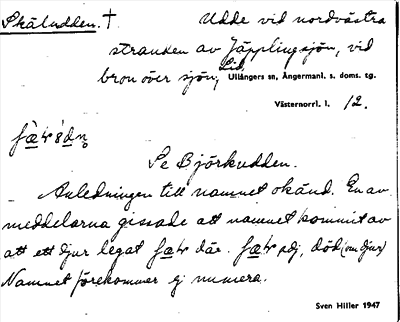 Skäludden. † Udde vid nordvästra
stranden av Jäpplingsjön, vid
bron över sjön, Lid,
Ullångers sn, Ångermanl. s. doms. tg.
Västernorrl. l. 12.
Se Björkudden.
Anledningen till namnet okänd. En av
meddelarna gissade att namnet kommit av
att ett djur legat fæ̱r där. fæ̱r adj, död (om djur)
Namnet förekommer ej numera.
Sven Hiller 1947